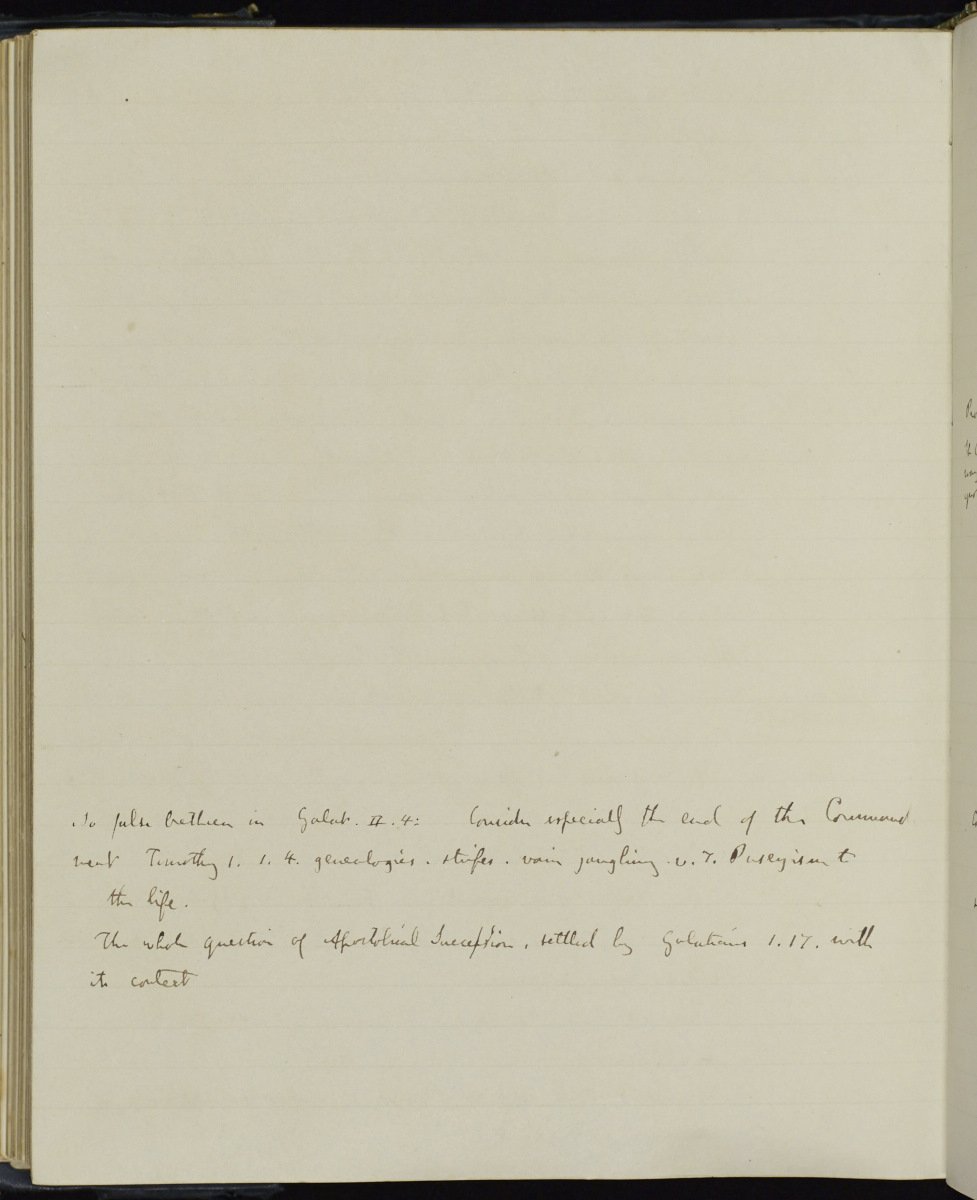 So false brethren in Galat. II. 4: Consider especially the end of the Command
ment Timothy 1. 1. 4. genealogies. strifes. vain jangling. v. 7. Puseyism to
the life.
The whole question of Apostolical Succession, settled by Galatians 1. 17. with
its context